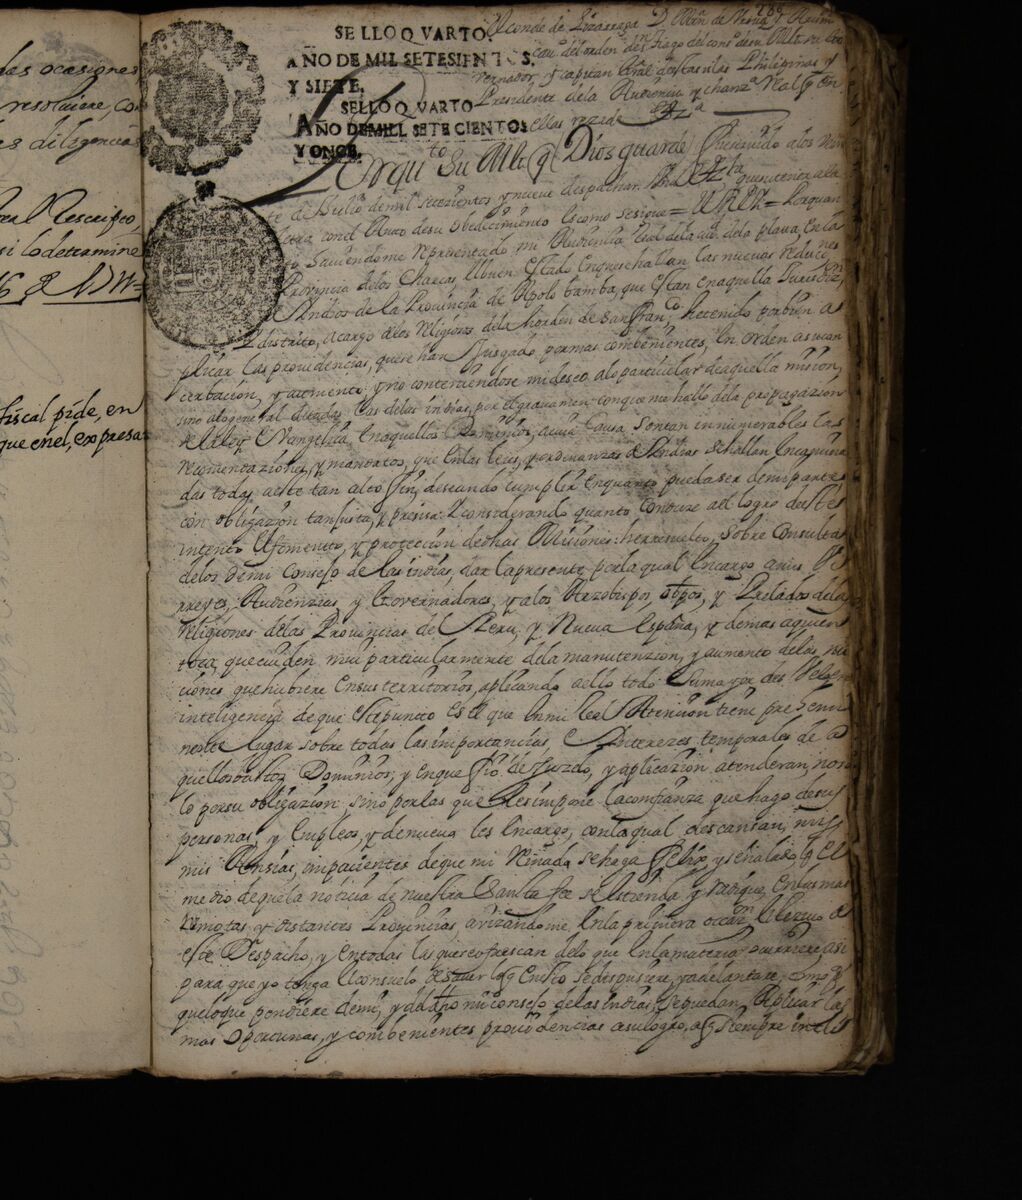 las ocasiones
resoluiere, co
es diligencias
Real Rescripto,
si lo determine
fiscal pide, en
que enel, expresa
286
SELLO QVARTO,
AÑO DE MIL SETESIENTOS,
Y SIETE.
SELLO QVARTO
AÑO DE MILL SETECIENTOS
Y ONCE.
El conde de Lizarraga D Mrn de Vrsua y
cau.º del orden de Sn Tiago del cons.º de su Mgd su Go
vernador, y capitan Gral de estas islas Philipinas y
Presidente dela Audiencia y chanz.ª Real q en
ellas recide
Por qu.to Su Mgd (q Dios guarde)
te de Julio de mil setezientos y nueve despachar
letra con el Auto de su obedecimiento es como se sigue = El Rey = Por quan
to hauiendome representado mi Audiencia Real dela ciu.d dela plata, en la
Provincia delos Charcas, el buen estado en que se hallan las nuevas reducio.nes
de Indios de la Provincia de Apolobamba, que estan en aquella Jurisdiz.on
y distrito, a cargo delos religiosos dela horden de San Fran.co he tenido por bien a
plicar las providencias, que se han Jusgado por mas combenientes, en orden a su con
cerbacion, y aumento y no conteniendose mi deseo alo particular de aquella mision,
sino alo general de todas las delas indias, por el gravamen con que me hallo dela propagazion
de la ley Evangelica, en aquellos Dominios, a cuia causa, son tan innumerables las
recomendaziones, y mandatos, que en las leies, y ordenanzas de Indias se hallan encamina
das todas a este tan alto fin, deseando cumplir en quanto pueda ser de mi parte
con obligazion tan justa, y presisa. Y considerando quanto conduze al logro de este
intento el fomento, y proteccion de dhas Misiones: he resuelto, sobre consulta
delos de mi Consejo de las indias, dar la presente por la qual encargo a mis Vi
rreyes, Audiencias, y Governadores, y alos Arzobispos, obpos, y Prelados delas
religiones delas Provincias del Peru, y Nueva España, y demas a quien
toca, que cuiden muy particularmente dela manutenzion, y aumento delas mi
ciones que hubiere en sus territorios, aplicando a ello todo su mayor desvelo en
inteligencia de que este punto es el que en mi Real Atencion tiene preemi
nente lugar sobre todas las importancias, e Interezes temporales de a
quellos Dominios; y en que fio de su zelo, y aplicazion atenderan, no so
lo por su obligazion sino por las que les impone la confianza que hago de sus
personas, y Empleos, y de nuevo les encargo, con la qual descansan,
mis Ansias, impacientes de que mi Reinado se haga feliz y señalado, q el
medio de que la noticia de nuestra Santa fee se estienda y radique, en las mas
remotas y distantes Provincias, avizandome en la primera ocazion el recivo de
este Despacho, y en todas las que se ofrescan delo que en la materia ocurriere, asi
para que yo tenga el consuelo de saver lo q en esto se dispusiere, y adelantare, como p.ª
que lo que pendiere de mi, y del dho mi consejo delas indias, se puedan aplicar las
mas oportunas, y combenientes providencias a su logro, a q siempre